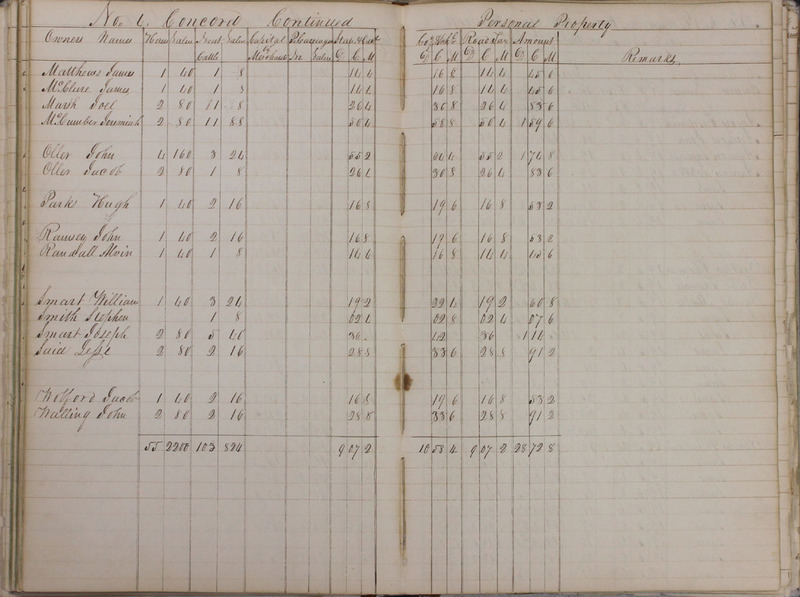 No. 6. Concord Continued Personal Property
Owners Names Horses Value Neat Cattle Value Capital of Merchant Pleasure Value State & Cant D C M Co & D C M Road Tax D C M Amount D C M Remarks
Matthews James 1 40 1 8 14 4 16 8 14 4 45 6
McClure James 1 40 1 8 14 4 16 8 14 4 45 6
Marsh Joel 2 80 1 8 26 4 30 8 26 4 83 6
McCumber Jeremiah 2 80 11 88 50 4 58 8 50 4 1 59 6
Oller John 4 160 3 24 55 2 64 4 55 2 1 74 8
Oller Jacob 2 80 1 8 26 4 30 8 26 4 83 6
Parks Hugh 1 40 2 16 16 8 19 6 16 8 53 2
Ramsey John 1 40 2 16 16 8 19 6 16 8 53 2
Randall Alvin 1 40 1 8 14 4 16 8 14 4 45 6
Smart William 1 40 3 24 19 2 22 4 19 2 60 8
Smith Stephen 1 8 02 4 02 8 02 4 07 6
Smart Joseph 2 80 5 40 36 42 36 1 14
Said 2 80 2 16 28 8 33 6 28 8 91 2
Wolford Jacob 1 40 2 16 16 8 19 6 16 8 53 2
Walling John 2 80 2 16 28 8 33 6 28 8 91 2
55 2200 103 824 9 07 2 10 58 4 9 07 2 28 72 8